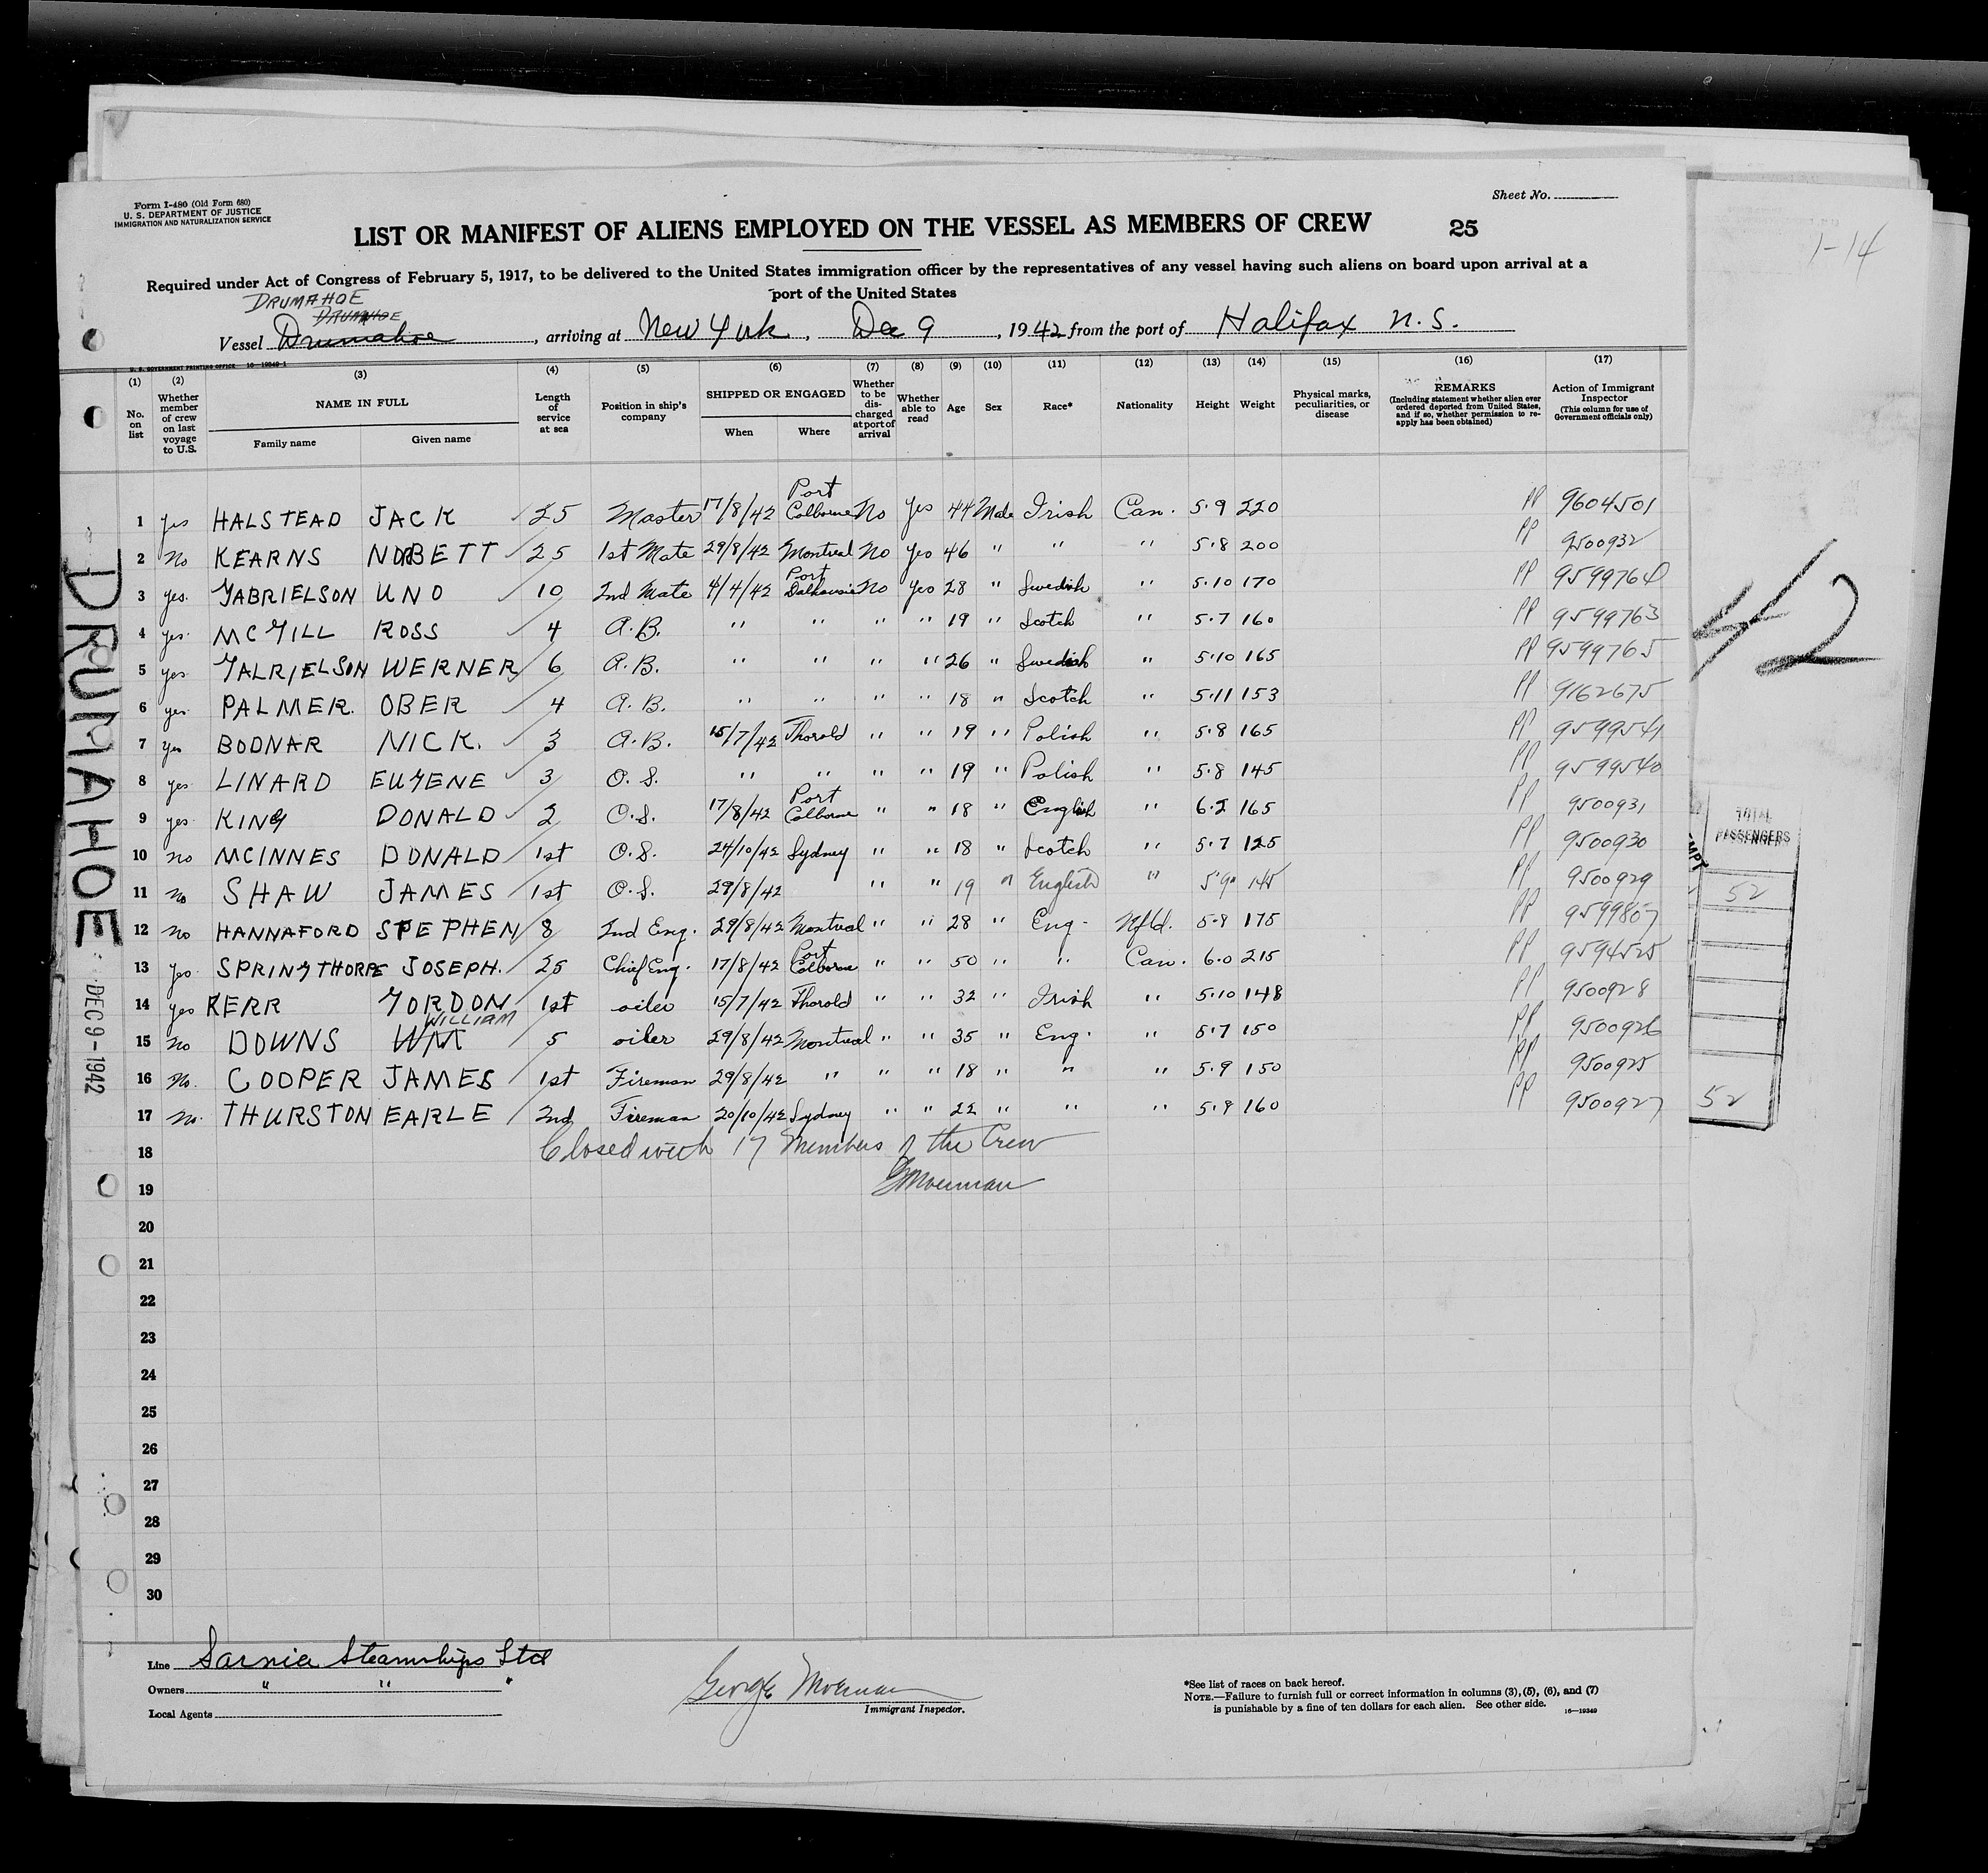 Form I-480 (Old Form 680)
U. S. DEPARTMENT OF JUSTICE
IMMIGRATION AND NATURALIZATION SERVICE
Sheet No.
LIST OR MANIFEST OF ALIENS EMPLOYED ON THE VESSEL AS MEMBERS OF CREW 25
1-14
Required under Act of Congress of February 5, 1917, to be delivered to the United States immigration officer by the representatives of any vessel having such aliens on board upon arrival at a
port of the United States
DRUMAHOE
Vessel Drumahoe, arriving at New York, Dec 9, 1942 from the port of Halifax N.S.
U. S. GOVERNMENT PRINTING OFFICE 16-19349-1
(1) (2) (3) (4) (5) (6) (7) (8) (9) (10) (11) (12) (13) (14) (15) (16) (17)
No. on list
Whether member of crew on last voyage to U.S.
NAME IN FULL
Family name Given name
Length of service at sea
Position in ship's company
SHIPPED OR ENGAGED
When Where
Whether to be discharged at port of arrival
Whether able to read
Age
Sex
Race*
Nationality
Height
Weight
Physical marks, peculiarities, or disease
REMARKS
(Including statement whether alien ever ordered deported from United States, and if so, whether permission to reapply has been obtained)
Action of Immigrant Inspector
(This column for use of Government officials only)
1 yes HALSTEAD JACK 25 Master 17/8/42 Port Colborne No Yes 44 Male Irish Can. 5.9 220 PP 9604501
2 No KEARNS NORBETT 25 1st Mate 29/8/42 Montreal No Yes 46 " " " 5.8 200 PP 9500932
3 yes. GABRIELSON UNO 10 2nd Mate 4/4/42 Port Dalhousie No Yes 28 " Swedish " 5.10 170 PP 9599764
4 yes. MCGILL ROSS 4 A.B. " " " " 19 " Scotch " 5.7 160 PP 9599763
5 yes GALRIELSON WERNER 6 A.B. " " " " 26 " Swedish " 5.10 165 PP 9599765
6 yes. PALMER. OBER 4 A.B. " " " " 18 " Scotch " 5.11 153 PP 9162675
7 yes BODNAR NICK. 3 A.B. 15/7/42 Thorold " " 19 " Polish " 5.8 165 PP 9599541
8 yes. LINARD EUGENE 3 O.S. " " " " 19 " Polish " 5.8 145 PP 9599540
9 yes. KING DONALD 2 O.S. 17/8/42 Port Colborne " " 18 " English " 6.2 165 PP 9500931
10 no MCINNES DONALD 1st O.S. 24/10/42 Sydney " " 18 " Scotch " 5.7 125 PP 9500930
11 No SHAW JAMES 1st O.S. 29/8/42 " " 19 " English " 5'9" 145 PP 9500929
12 no HANNAFORD STEPHEN 8 2nd Eng. 29/8/42 Montreal " " 28 " Eng. Nfld. 5.9 175 PP 9599807
13 yes. SPRINGTHORPE JOSEPH. 25 Chief Eng. 17/8/42 Port Colborne " " 50 " " Can. 6.0 215 PP 9594525
14 yes KERR GORDON 1st oiler 15/7/42 Thorold " " 32 " Irish " 5.10 148 PP 9500928
WILLIAM
15 No DOWNS WM 5 oiler 29/8/42 Montreal " " 35 " Eng. " 5.7 150 PP 9500926
16 No. COOPER JAMES 1st Fireman 29/8/42 " " " 18 " " " 5.9 150 PP 9500925
17 No. THURSTON EARLE 2nd Fireman 20/10/42 Sydney " " 22 " " " 5.9 160 PP 9500927
18 Closed with 17 Members of the Crew
19 GMoerman
20
21
22
23
24
25
26
27
28
29
30
DRUMAHOE
DEC 9-1942
42
TOTAL PASSENGERS
52
52
Line Sarnia Steamships Ltd
Owners " " "
Local Agents
George Moerman
Immigrant Inspector.
*See list of races on back hereof.
NOTE.—Failure to furnish full or correct information in columns (3), (5), (6), and (7)
is punishable by a fine of ten dollars for each alien. See other side.
16—19349